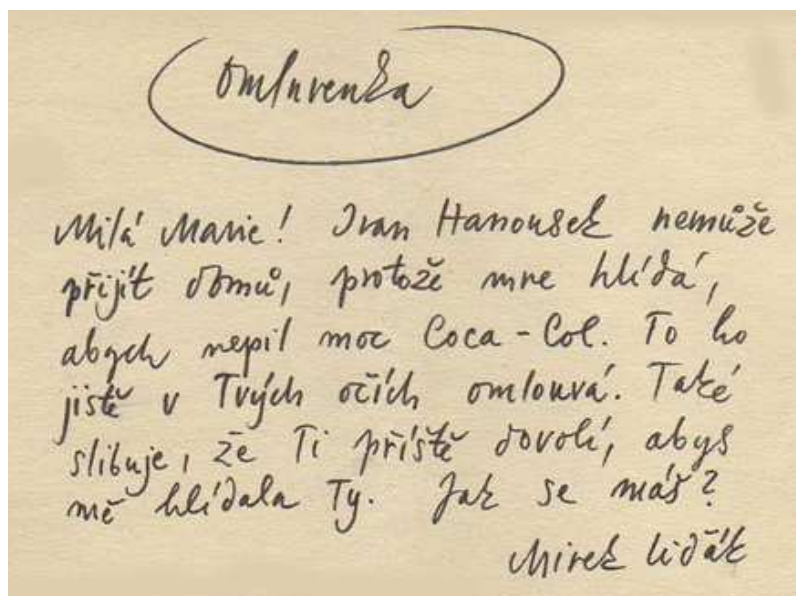 Omluvenka
Milá Marie! Ivan Hanousek nemůže
přijít domů, protože mne hlídá,
abych nepil moc Coca-Col. To ho
jistě v Tvých očích omlouvá. Také
slibuje, že Ti příště dovolí, abys
mě hlídala Ty. Jak se máš?
Mirek Liďák